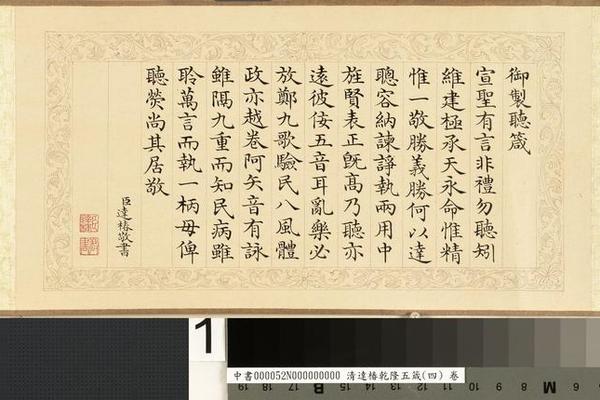 御製聽箴
宣聖有言非禮勿聽矧
維建極承天永命惟精
惟一敬勝義勝何以達
聰容納諫諍執兩用中
旌賢表正旣髙乃聽亦
遠彼佞五音耳亂樂必
放鄭九歌驗民八風體
政亦越卷阿矢音有詠
雖隔九重而知民病雖
聆萬言而執一柄毋俾
聽熒尚其居敬
臣達椿敬書
1
中書000052N000000000 清達椿乾隆五箴(四) 卷
19 18 17 16 15 B 12 11 10 9 8 M 6 5 4 3 2